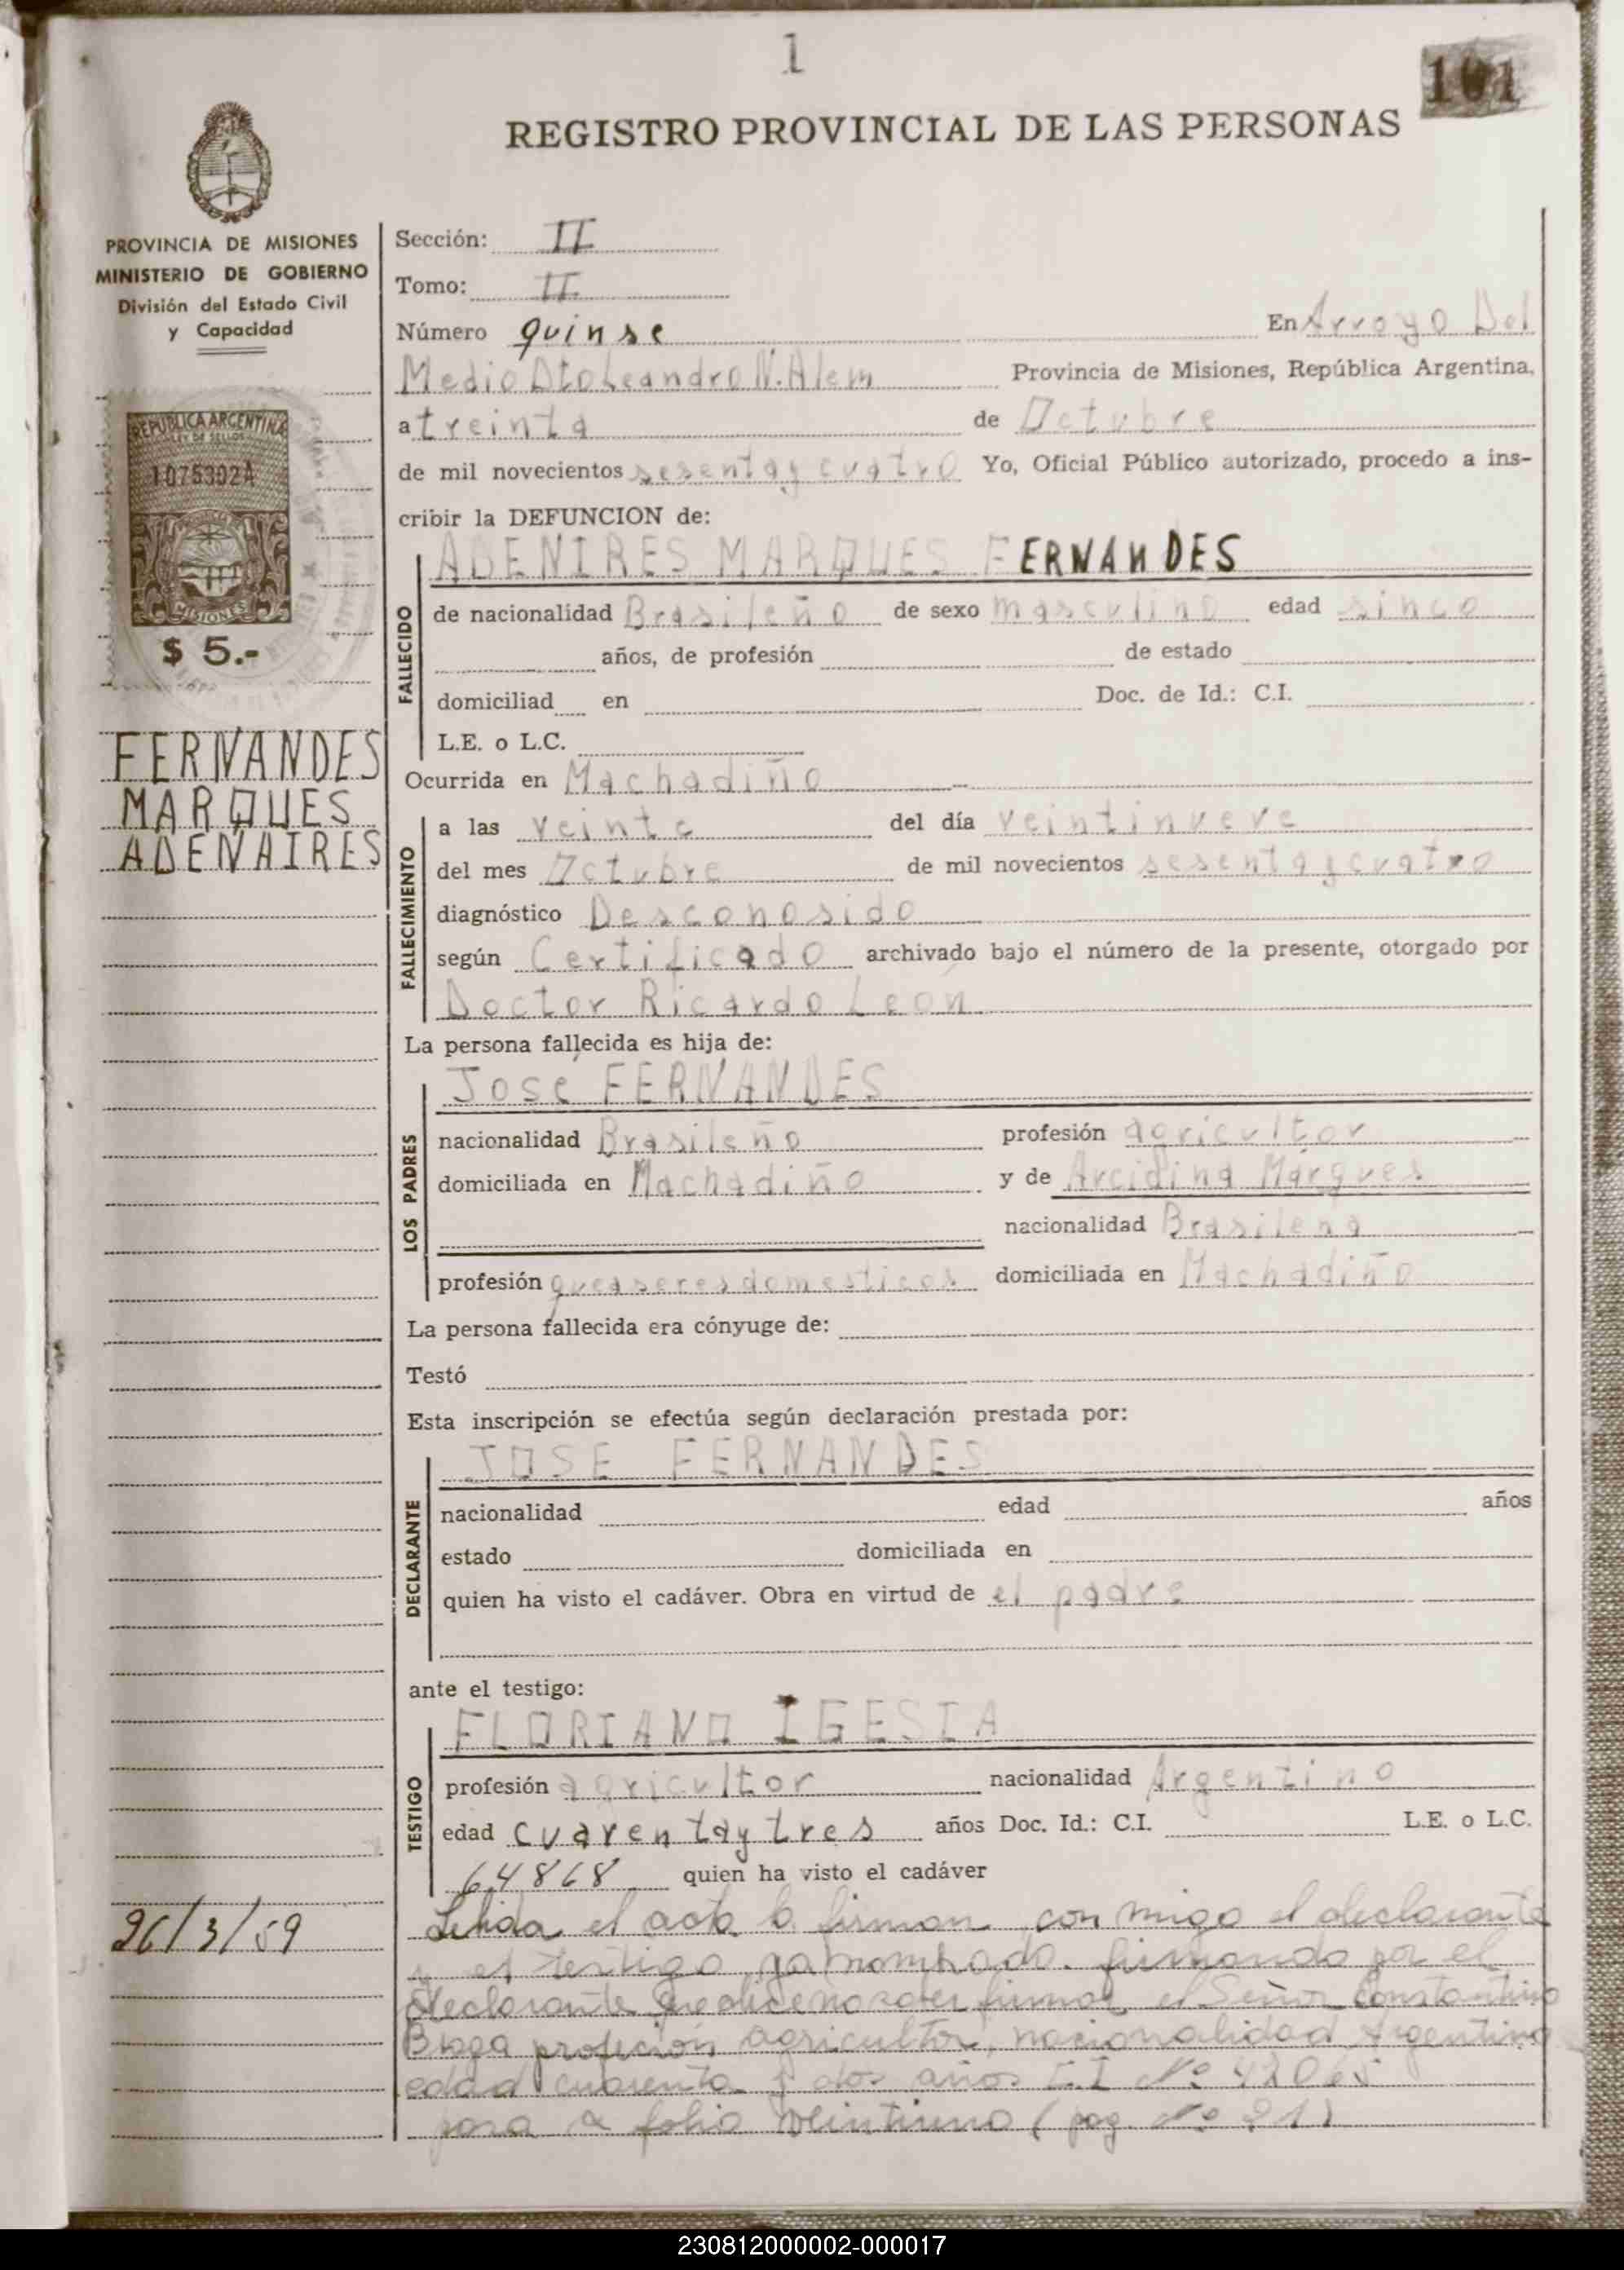 1
101
REGISTRO PROVINCIAL DE LAS PERSONAS
PROVINCIA DE MISIONES
MINISTERIO DE GOBIERNO
División del Estado Civil
y Capacidad
REPUBLICA ARGENTINA
LEY DE SELLOS
1075302A
MISIONES
$ 5.-
FERNANDES
MARQUES
ADENAIRES
26/3/59
Sección: II
Tomo: II
Número quinse En Arroyo Del
Medio Dto Leandro N. Alem Provincia de Misiones, República Argentina,
a treinta de Octubre
de mil novecientos sesenta y cuatro Yo, Oficial Público autorizado, procedo a ins-
cribir la DEFUNCION de:
ADENIRES MARQUES FERNANDES
FALLECIDO
de nacionalidad Brasileño de sexo masculino edad sinco
años, de profesión de estado
domiciliad en Doc. de Id.: C.I.
L.E. o L.C.
Ocurrida en Machadiño
FALLECIMIENTO
a las veinte del día veintinueve
del mes Octubre de mil novecientos sesenta y cuatro
diagnóstico Desconosido
según Certificado archivado bajo el número de la presente, otorgado por
Doctor Ricardo Leon
La persona fallecida es hija de:
Jose FERNANDES
LOS PADRES
nacionalidad Brasileño profesión agricultor
domiciliada en Machadiño y de Arcidina Marques
nacionalidad Brasilena
profesión queaseres domesticos domiciliada en Machadiño
La persona fallecida era cónyuge de:
Testó
Esta inscripción se efectúa según declaración prestada por:
JOSE FERNANDES
DECLARANTE
nacionalidad edad años
estado domiciliada en
quien ha visto el cadáver. Obra en virtud de el padre
ante el testigo:
FLORIANO IGESIA
TESTIGO
profesión agricultor nacionalidad Argentino
edad cuarenta y tres años Doc. Id.: C.I. L.E. o L.C.
64868 quien ha visto el cadáver
Lehida el acta la firman con migo el declarante
y el testigo ya nombrado. firmando por el
declarante que dice no saber firmar el Señor Constantino
Braga profecion agricultor, nacionalidad Argentino
edad cuarenta y dos años C.I Nº
pasa a folio veintiuno (pag. Nº 21)
230812000002-000017